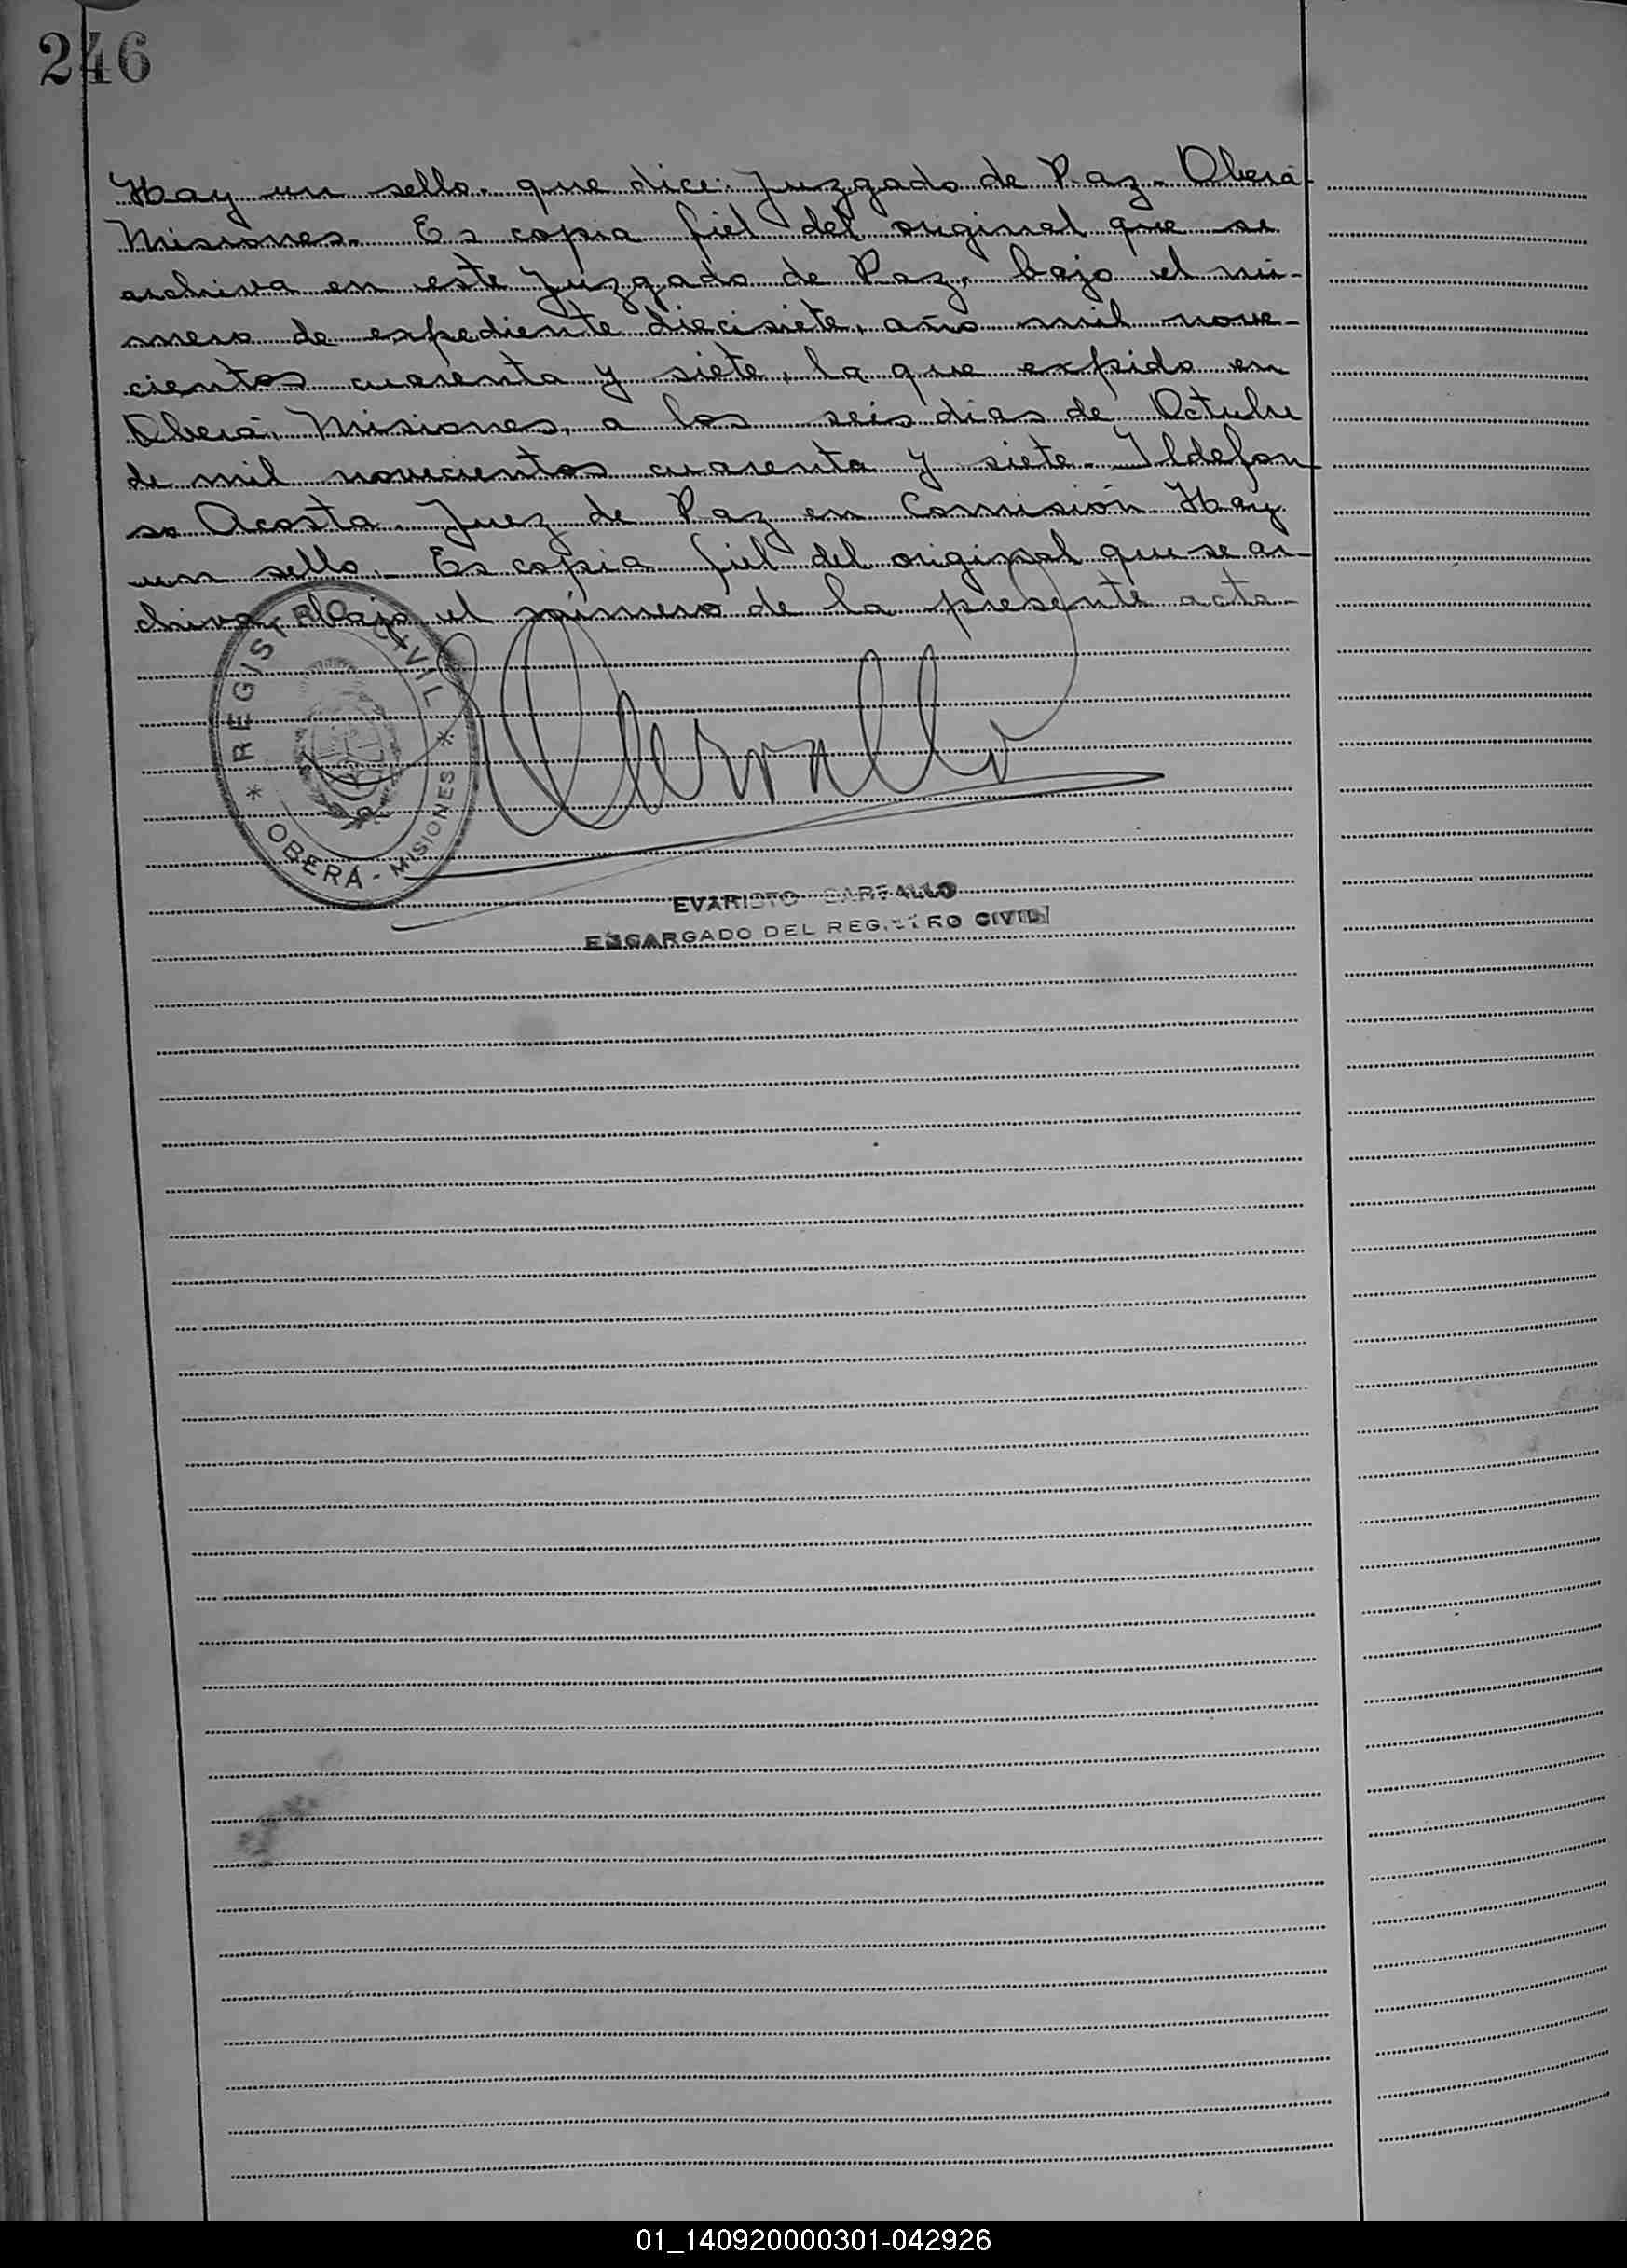 246
Hay un sello que dice: Juzgado de Paz - Oberá
Misiones. Es copia fiel del original que se
archiva en este Juzgado de Paz, bajo el nú-
mero de expediente diecisiete, año mil nove-
cientos cuarenta y siete, la que expido en
Oberá, Misiones, a los seis dias de Octubre
de mil novecientos cuarenta y siete. Ildefon-
so Acosta. Juez de Paz en Comisión. Hay
un sello. - Es copia fiel del original que se ar-
chiva, bajo el número de la presente acta -
* REGISTRO CIVIL *
OBERÁ - MISIONES
EVARISTO CARBALLO
ENCARGADO DEL REGISTRO CIVIL
01_140920000301-042926